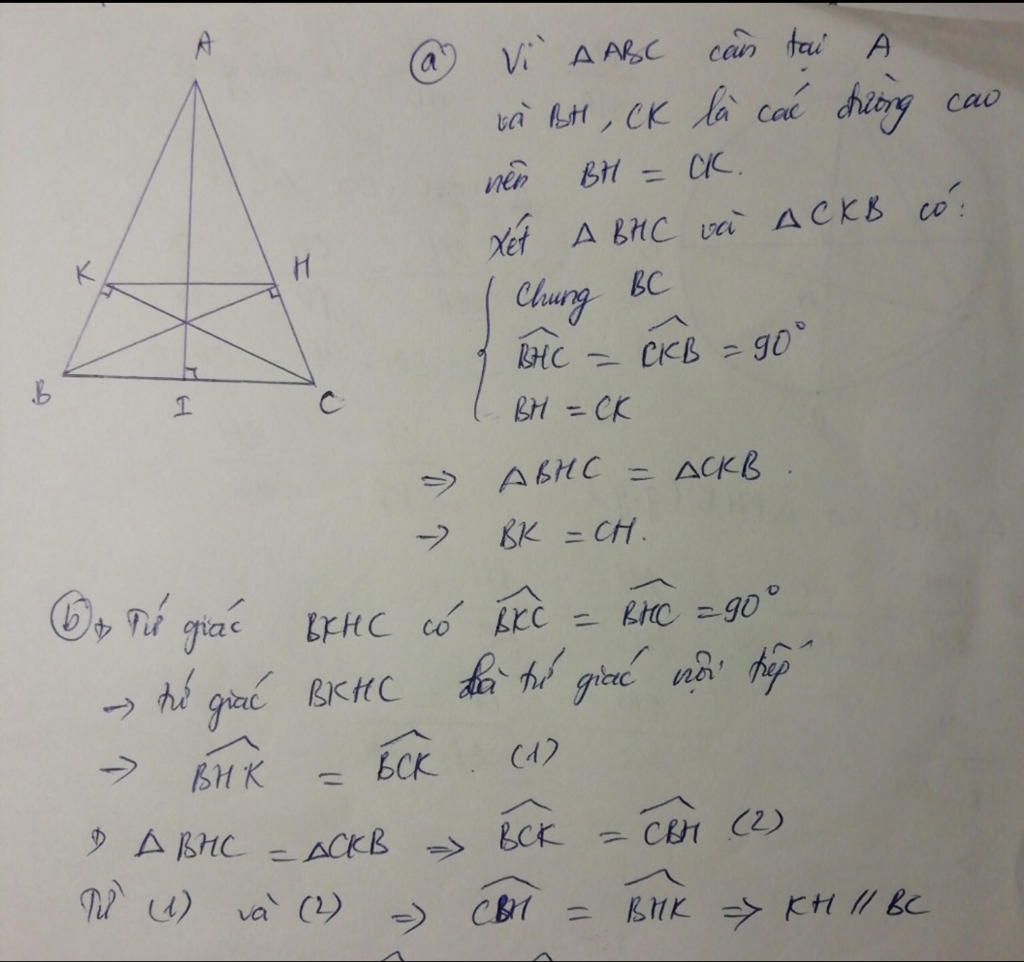 A
K
H
B
I
C
a) Vì ΔABC cân tại A
và BH, CK là các đường cao
nên BH = CK.
Xét ΔBHC và ΔCKB có:
Chung BC
\widehat{BHC} = \widehat{CKB} = 90°
BH = CK
⇒ ΔBHC = ΔCKB.
→ BK = CH.
b) Tứ giác BKHC có \widehat{BKC} = \widehat{BHC} = 90°
→ tứ giác BKHC là tứ giác nội tiếp
→ \widehat{BHK} = \widehat{BCK}. (1)
ΔBHC = ΔCKB ⇒ \widehat{BCK} = \widehat{CBH} (2)
Từ (1) và (2) ⇒ \widehat{CBH} = \widehat{BHK} ⇒ KH // BC